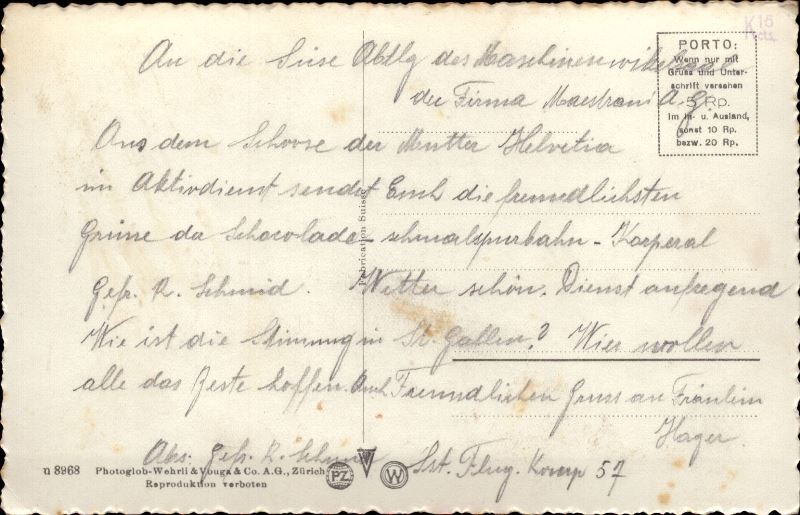 K 15
cts.
An die Süse Abtlg des Maschinenwikelsaal
der Firma Maestrani A.G.
PORTO:
Wenn nur mit
Gruss und Unter-
schrift versehen
5 RP.
im In- u. Ausland,
sonst 10 Rp.
bezw. 20 Rp.
Aus dem Schoose der Mutter Helvetia
im Aktivdienst sendet Euch die freundlichsten
Grüsse da Schocolade-schmalspurbahn-Korperal
Gefr. R. Schmid. Wetter schön. Dienst anfregend
Wie ist die Stimmung in St. Gallen? Wier wollen
alle das Beste hoffen. Auch Freundlichen Gruss an Fräulein
Hager.
Abs: Gefr. R. Schmid Sst. Flug. Komp 57
Fabrication Suisse
n 8968 Photoglob-Wehrli & Vouga & Co. A.G., Zürich
Reproduktion verboten
PZ
V
W